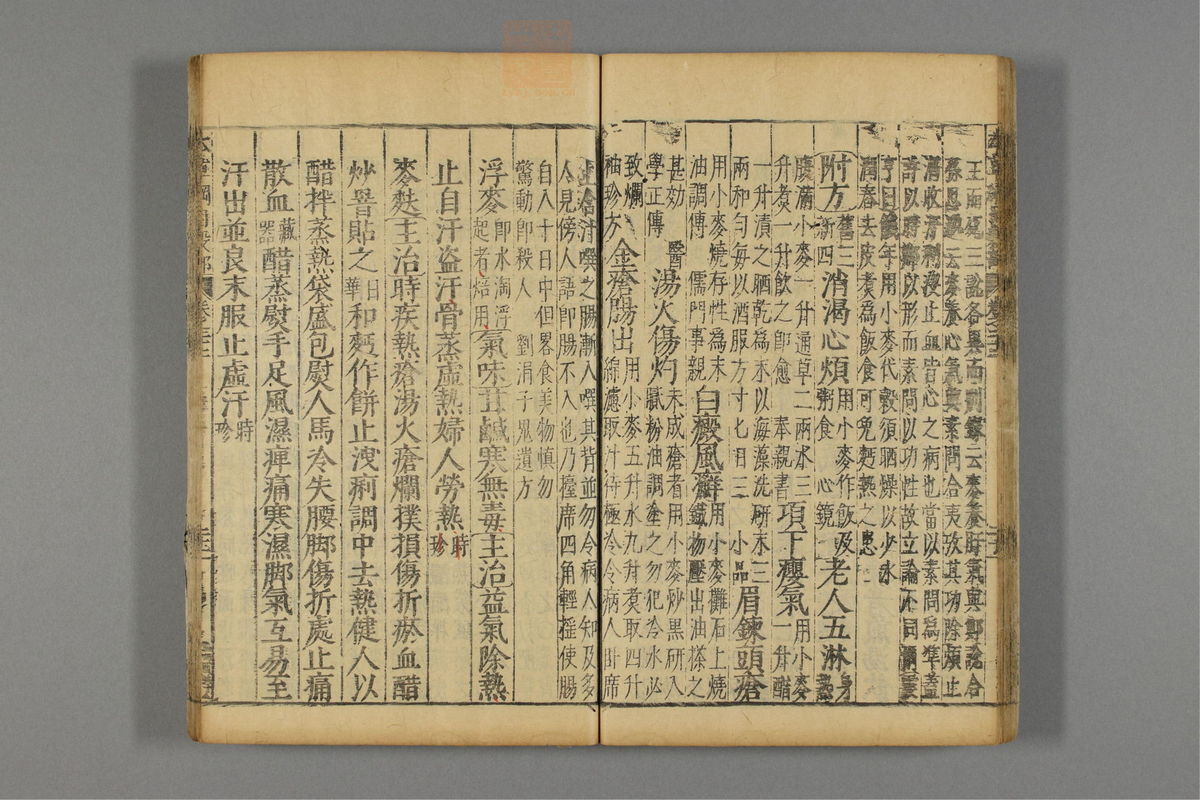 王而使三說各異而別錄云麥養肝氣與鄭說合
孫思邈云麥養心氣與素問合夷攷其功除煩止
渴收汗利溲止血皆心之病也當以素問為準蓋
許以時鄭以形而素問以功性故立論不同爾震
亨曰饑年用小麥代穀須晒燥以少水
潤舂去皮煮爲飯食可免麪熱之患
附方舊三新四消渴心煩用小麥作飯及粥食心鏡老人五淋身熱
腹滿小麥一升通草二兩水三升煮一升飲之即愈奉親書項下癭氣用小麥一升醋
一升漬之晒乾爲末以海藻洗研末三兩和勻每以酒服方寸匕日三小品眉鍊頭瘡
用小麥燒存性爲末油調傅儒門事親白癜風癬用小麥攤石上燒鐵物壓出油搽之
甚効醫學正傳湯火傷灼未成瘡者用小麥炒黑研入膩粉油調塗之勿犯冷水必
致爛袖珍方金瘡腸出用小麥五升水九升煮取四升綿濾取汁待極冷令病人卧席
上含汁噀之腸漸入噀其背並勿令病人知及多
人見傍人語即腸不入也乃擡席四角輕搖使腸
自入十日中但畧食美物慎勿
驚動即殺人劉涓子鬼遺方
浮麥即水淘浮起者焙用氣味甘鹹寒無毒主治益氣除熱
止自汗盜汗骨蒸虛熱婦人勞熱時珍
麥麩主治時疾熱瘡湯火瘡爛撲損傷折瘀血醋
炒罯貼之日華和麪作餅止洩痢調中去熱健人以
醋拌蒸熱袋盛包熨人馬冷失腰脚傷折處止痛
散血藏器醋蒸熨手足風濕痺痛寒濕脚氣互易至
汗出並良末服止虛汗時珍